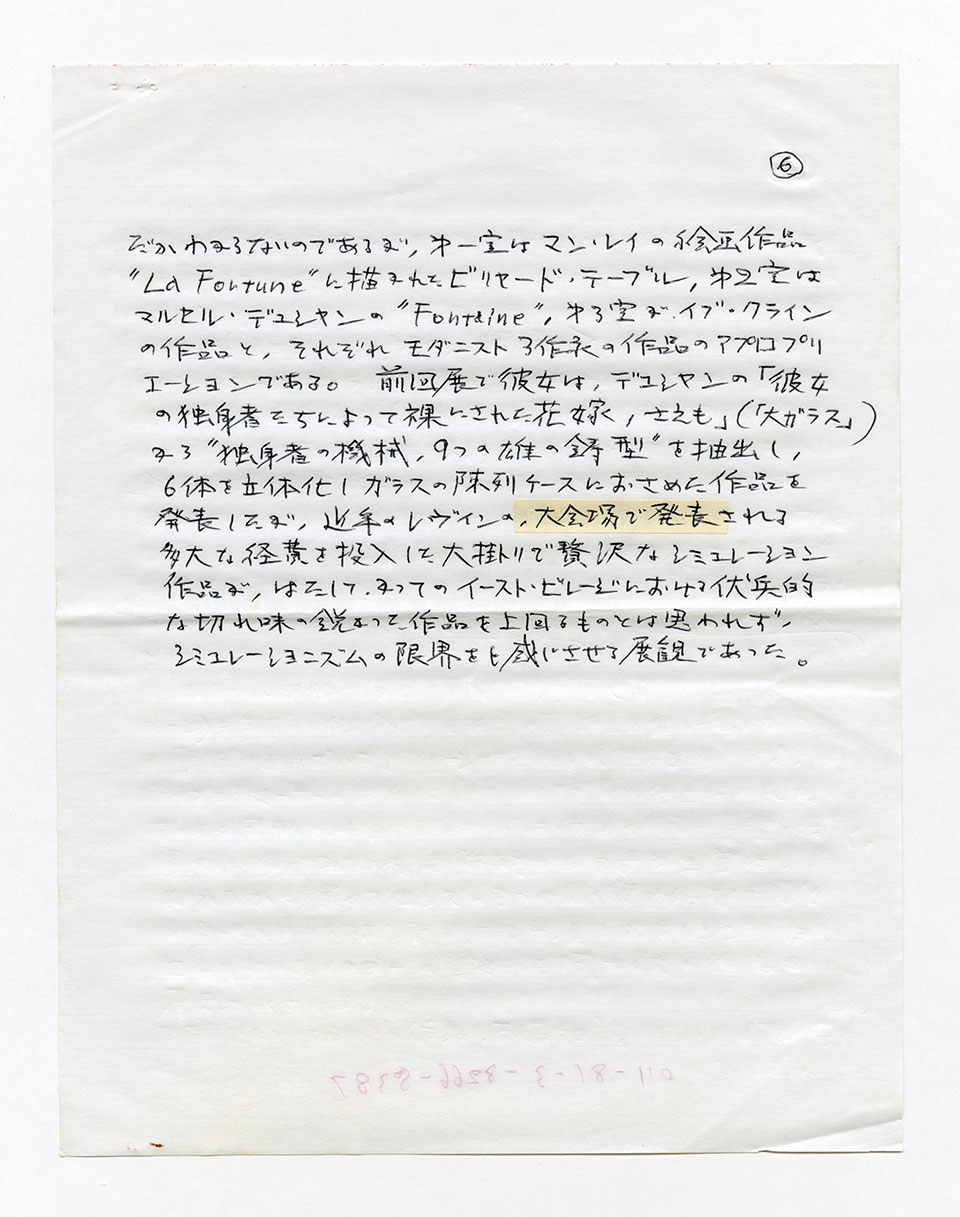 ⑥
だかわからないのであるが，第一室はマン・レイの絵画作品
"La Fortune"に描かれたビリヤード・テーブル，第2室は
マルセル・デュシャンの"Fontaine"，第3室が，イブ・クライン
の作品と，それぞれモダニスト3作家の作品のアプロプリ
エーションである。 前回展で彼女は，デュシャンの「彼女
の独身者たちによって裸にされた花嫁，さえも」（「大ガラス」）
から"独身者の機械，9つの雄の鋳型"を抽出し，
6体を立体化しガラスの陳列ケースにおさめた作品を
発表したが，近年のレヴィンの，大会場で発表される
多大な経費を投入した大掛りで贅沢なシミュレーション
作品が，はたして，かつてのイースト・ビレージにおける伏兵的
な切れ味の鋭かった作品を上回るものとは思われず，
シミュレーショニズムの限界をも感じさせる展観であった。
011-81-3-3266-8387